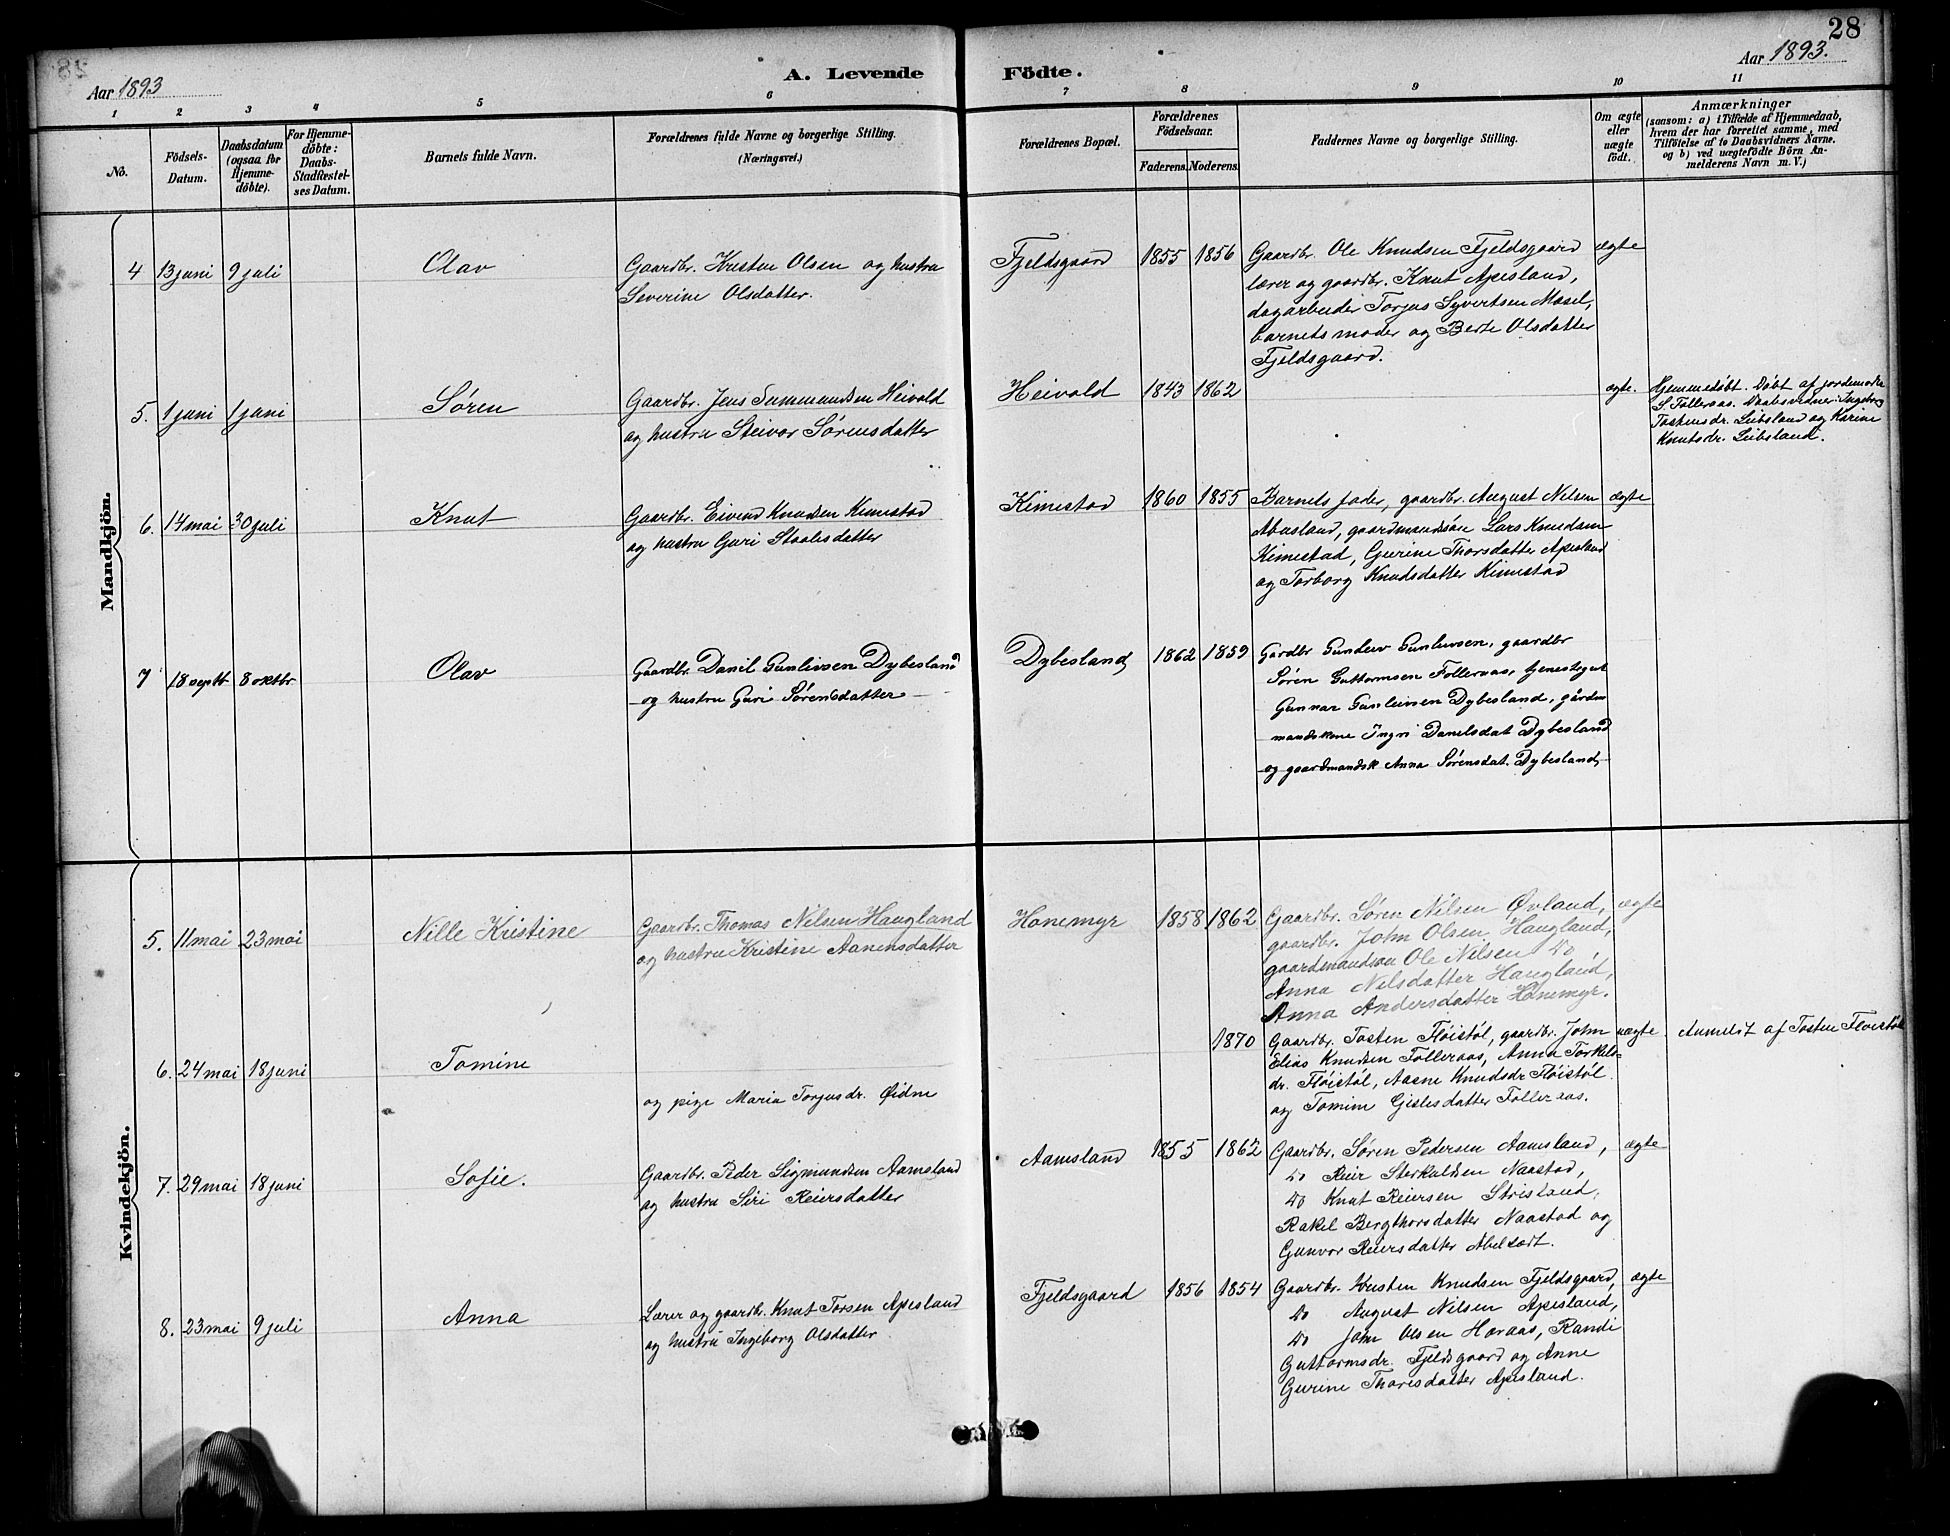 28
Aar 1893
A. Levende Födte.
Aar 1893.
1 2 3 4 5 6 7 8 9 10 11
No.
Födsels-Datum.
Daabsdatum (ogsaa for Hjemme-döbte).
For Hjemme-döbte: Daabs-Stadfæstel-ses Datum.
Barnets fulde Navn.
Forældrenes fulde Navne og borgerlige Stilling.
(Næringsvei.)
Forældrenes Bopæl.
Forældrenes Födselsaar.
Faderens. Moderens.
Faddernes Navne og borgerlige Stilling.
Om ægte eller uægte født.
Anmærkninger
(saasom: a) i Tilfælde af Hjemmedaab,
hvem der har forrettet samme, med
Tilföielse af to Daabsvidners Navne.
og b) ved uægtefödte Börn An-
melderens Navn m. V.)
Mandkjön.
4 13 juni 9 juli Olav
Gaardbr. Kristen Olsen og hustru
Severine Olsdatter.
Fjeldsgaard 1855 1856
Gaardbr. Ole Knudsen Fjeldsgaard
lærer og gaardbr. Knut Apesland,
dagarbeider Torjus Syvertsen Mosel,
barnets moder og Berte Olsdatter
Fjeldsgaard.
ægte
5. 1 juni 1 juni Søren
Gaardbr. Jens Summundsen Heivold
og hustru Steivor Sørensdatter
Heivold 1843 1862
ægte.
Hjemmedøbt. Døbt af jordemoder
S. Følleraas. Daabsvidner: Ingeborg
Tostensdr. Leibsland og Karine
Knutsdr. Leibsland.
6. 14 mai 30 juli Knut
Gaardbr. Eivend Knudsen Kimestad
og hustru Guri Staalesdatter
Kimestad 1860 1855
Barnets fader, gaardbr. August Nilsen
Abusland, gaardmandsøn Lars Knudsen
Kimestad, Gurine Thorsdatter Apesland
og Torborg Knudsdatter Kimestad
ægte
7 18 septb 8 oktbr Olav
Gaardbr. Danil Gunlivsen Dybesland
og hustru Guri Sørensdatter
Dybesland 1862 1859
Gardbr Gunleiv Gunlivsen, gaardbr
Søren Guttormsen Følleraas, tjenestegut
Gunnar Gunleivsen Dybesland, gården
mandskone Ingri Danelsdat Dybesland
og gaardmandsk Anna Sørensdat. Dybesland
Kvindekjön.
5. 11 mai 23 mai Nille Kristine
Gaardbr. Thomas Nilsen Haugland
og hustru Kristine Aanensdatter
Honemyr 1858 1862
Gaardbr. Søren Nilsen Øvland,
gaardbr. John Olsen Haugland,
gaardmandsøn Ole Nilsen do
Anna Nilsdatter Haugland,
Anna Andersdatter Honemyr.
ægte
6. 24 mai 18 juni Tomine
og pige Maria Torjusdr. Øidne
1870
Gaardbr. Tosten Fløistøl, gaardbr. John
Elias Knudsen Følleraas, Anna Torkels-
dr. Fløistøl, Aasne Knudsdr Fløistøl
og Tomine Gislesdatter Følleraas.
uægte
Anmeldt af Tosten Fløistøl
7. 29 mai 18 juni Sofie.
Gaardbr. Peder Sigmundsen Aamsland
og hustru Siri Reiersdatter
Aamsland 1855 1862
Gaardbr. Søren Pedersen Aamsland,
do Reier Sterkulsen Naastad,
do Knut Reiersen Strisland,
Rakel Bergthorsdatter Naastad og
Gunvor Reiersdatter Abelsædt.
ægte
8. 23 mai 9 juli Anna
Lærer og gaardbr. Knut Torsen Apesland
og hustru Ingeborg Olsdatter
Fjeldsgaard 1856 1854
Gaardbr. Kristen Knudsen Fjeldsgaard,
do August Nilsen Apesland,
do John Olsen Høraas, Randi
Guttormsdr. Fjeldsgaard og Anne
Gurine Thoresdatter Apesland.
ægte